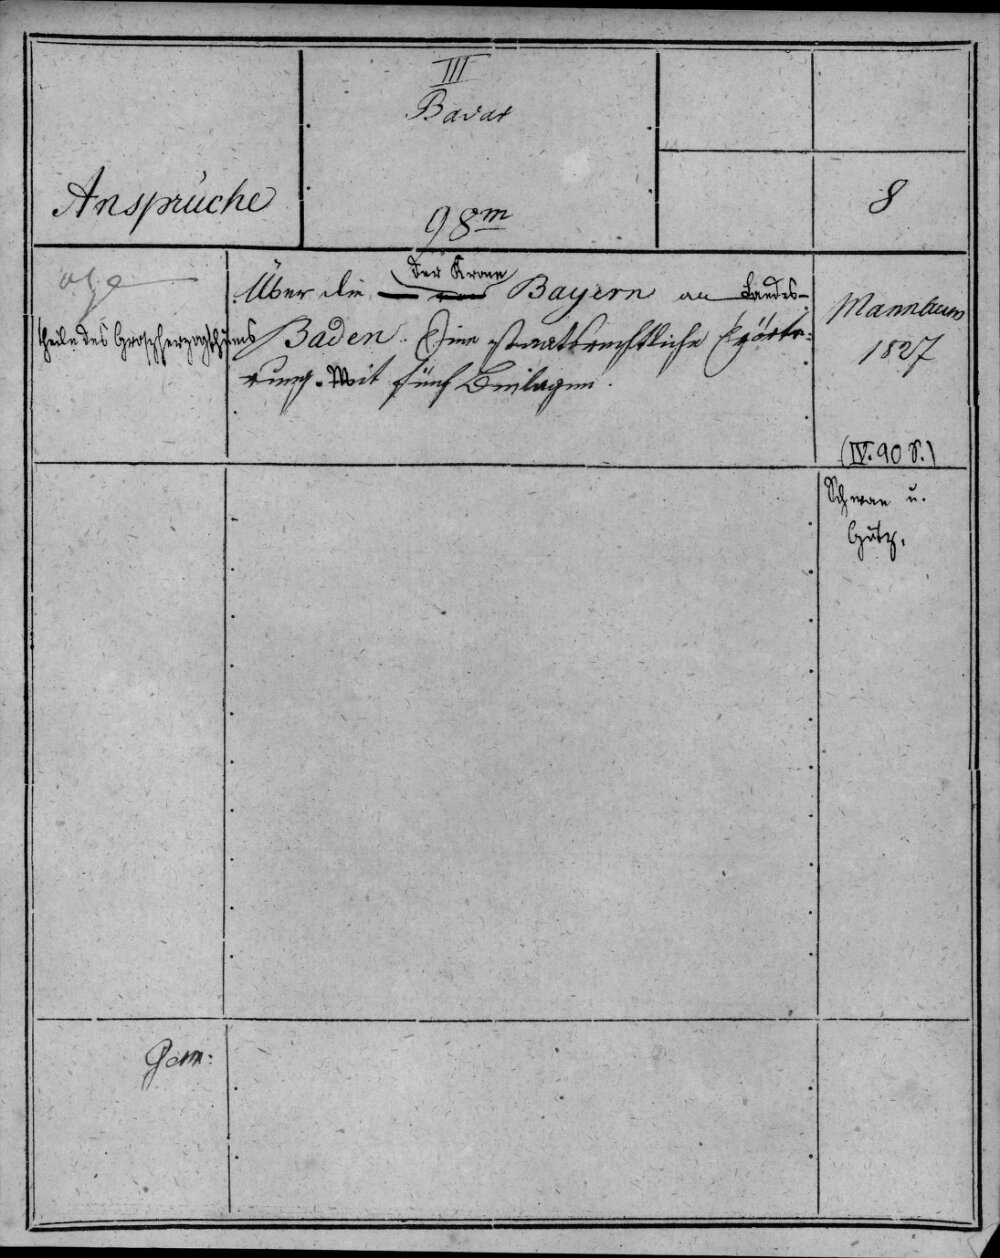 III
Bavar
Ansprüche
98m
8
der Krone
Über die — Bayern an Landes-
theile des Grossherzogthums Baden. Eine staatsrechtliche Erörte-
rung. Mit fünf Beilagen.
Mannheim
1827
(IV. 90 S.)
Schwan u.
Götz.